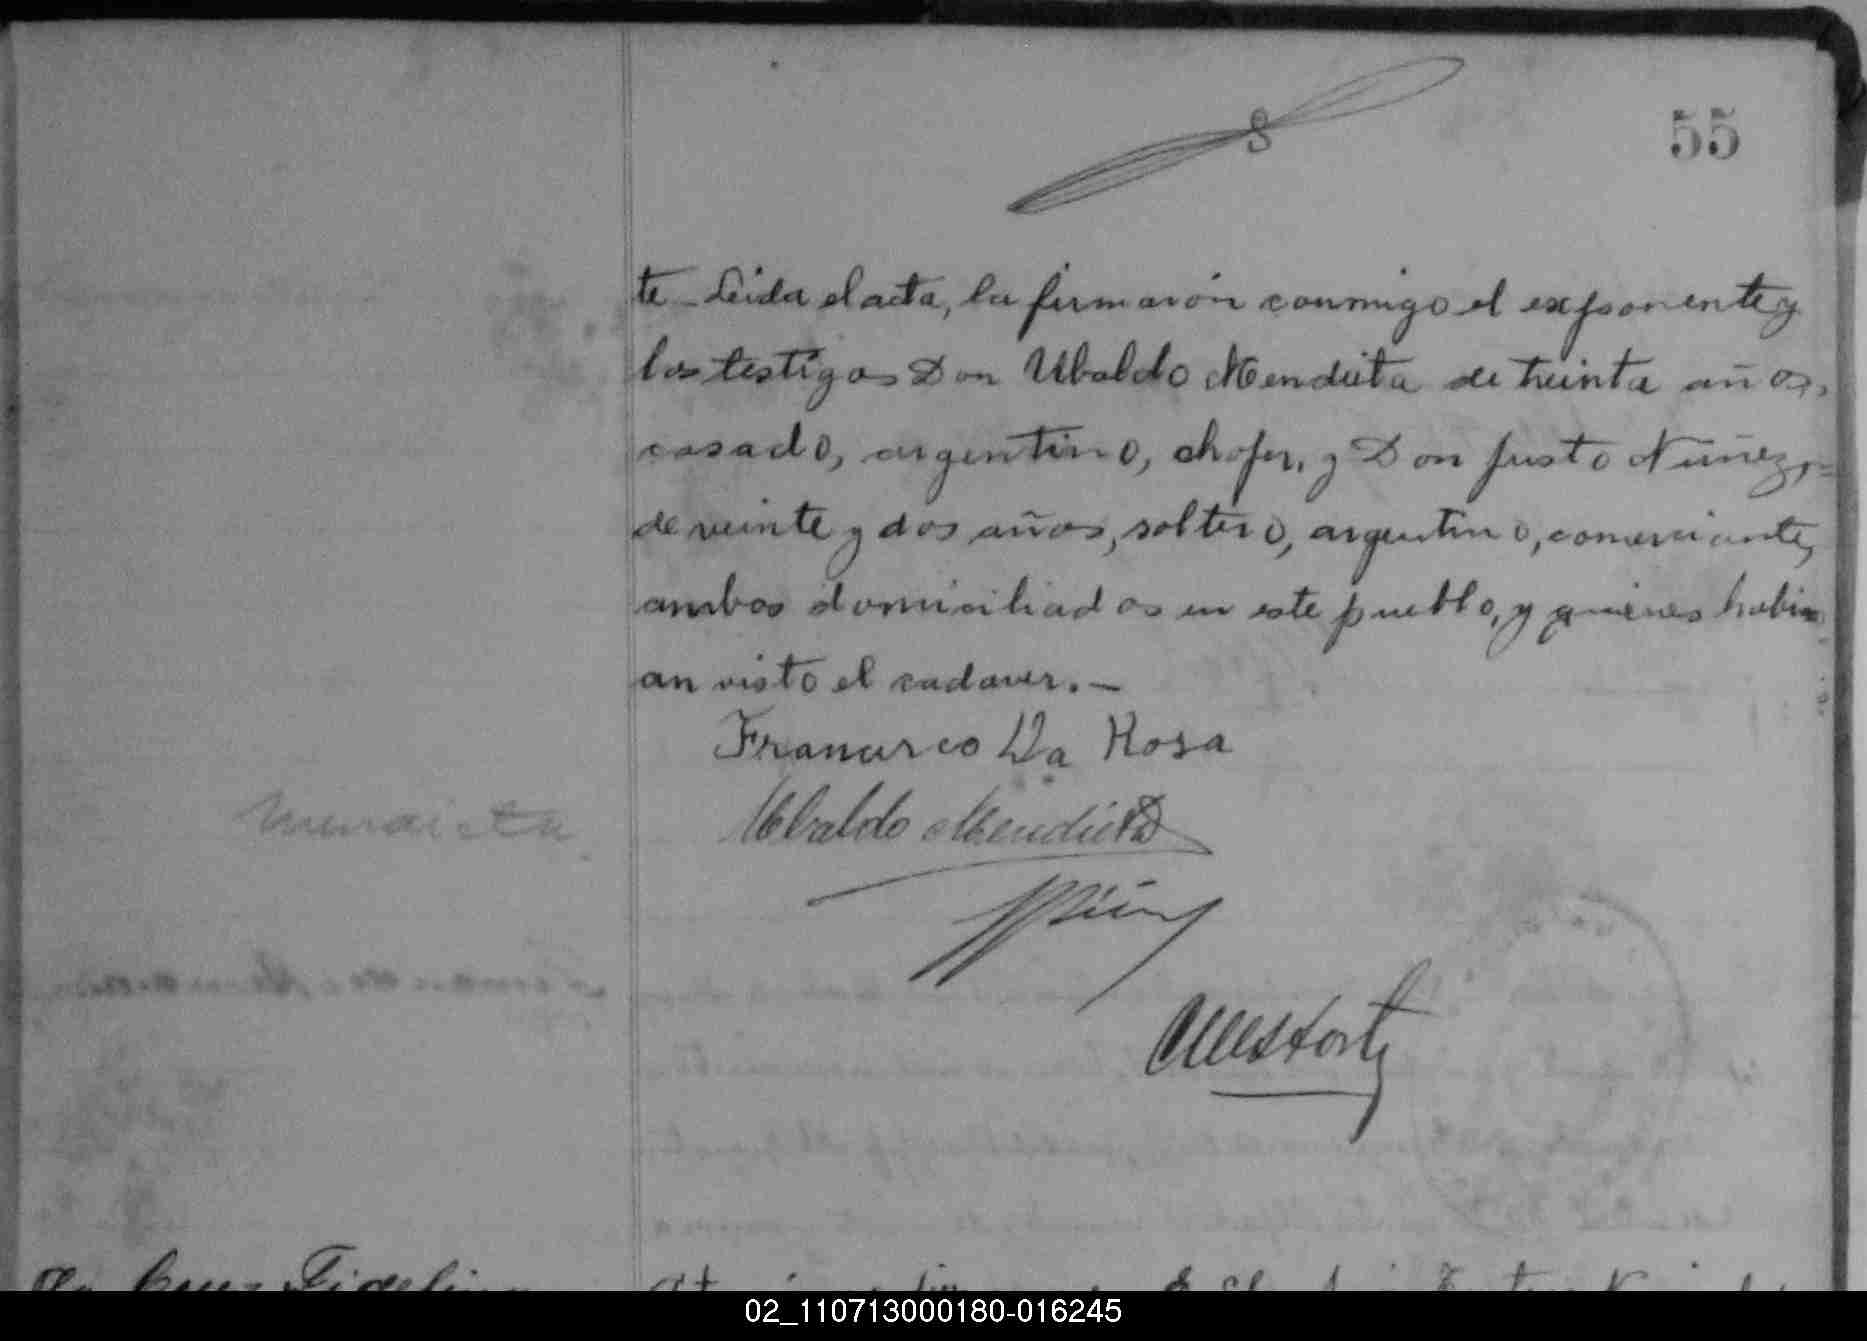 55
te - Leida el acta, la firmarón conmigo el exponente y
los testigos Don Ubaldo Mendieta de treinta años,
casado, argentino, chofer, y Don Justo Nuñez,
de veinte y dos años, soltero, argentino, comerciante,
ambos domiciliados en este pueblo, y quienes habi-
an visto el cadaver. -
Francisco Da Rosa
Ubaldo Mendieta
Mendieta
Cruz Fidelina
02_110713000180-016245